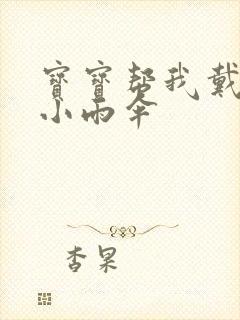 寶寶幫我戴
小雨伞
杏果